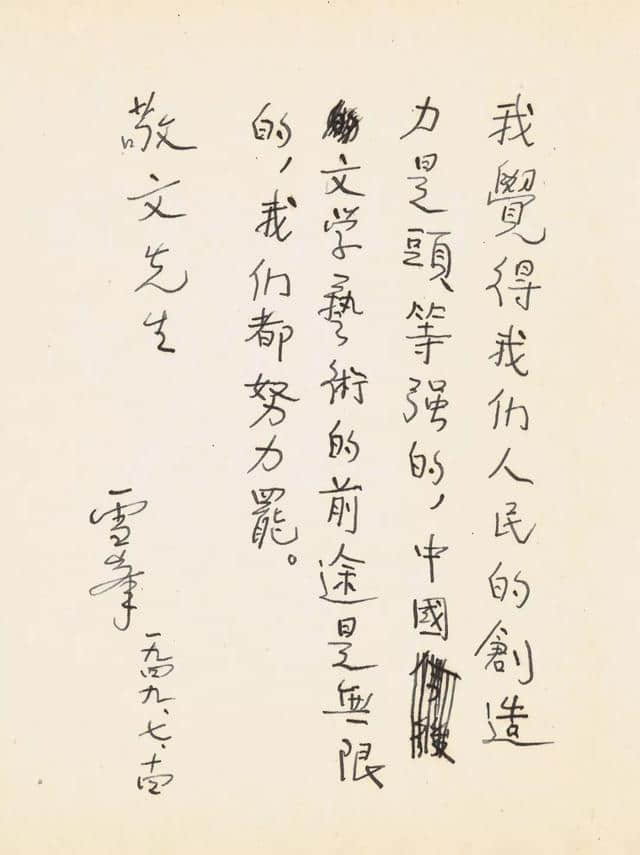 我覺得我们人民的創造
力是頭等强的，中國
文学藝術的前途是無限
的，我们都努力罷。
敬文先生
雪峯
一九四九、七、十四